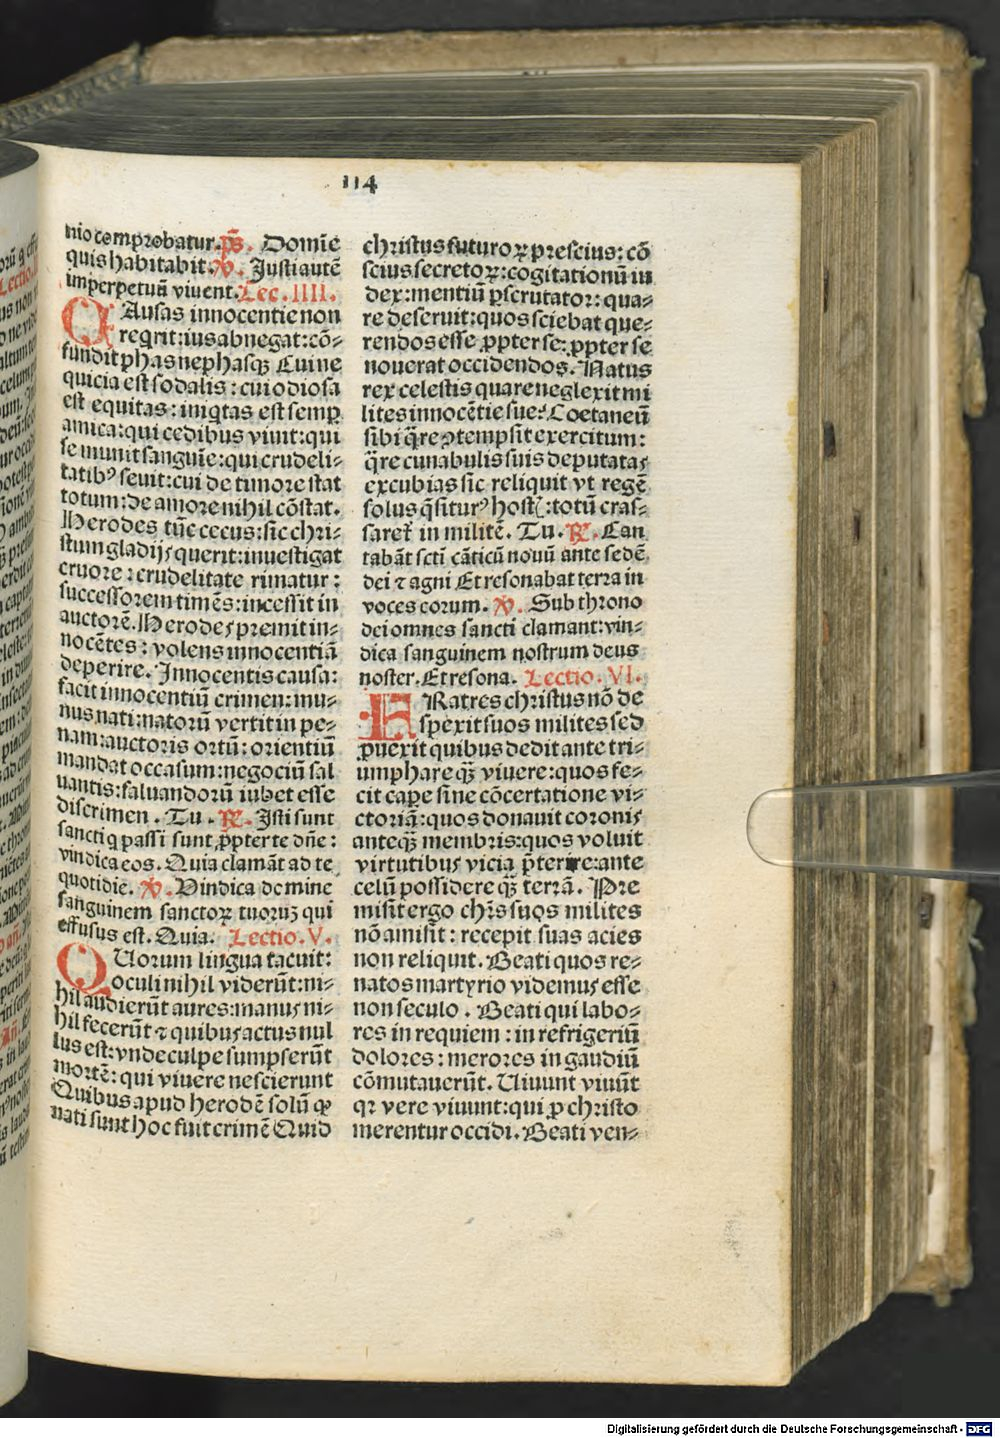 114
nio comprobatur. p̄s. Domīe
quis habitabit. ℣. Justi autē
imperpetuū viuent. Lec. IIII.
CAusas innocentie non
reqrit: ius abnegat: cō⸗
fundit phas nephasqꝫ Cui ne
quicia est sodalis: cui odiosa
est equitas: iniqtas est semꝑ
amica: qui cedibus viuit: qui
se munit sanguīe: qui crudeli⸗
tatibꝰ seuit: cui de timore stat
totum: de amore nihil cōstat.
Herodes tūc cecus: sic chri⸗
stum gladijs querit: inuestigat
cruore ⁊ crudelitate rimatur:
successorem timēs: incessit in
auctorē. Herodes premit in⸗
nocētes: volens innocentiā
deperire. Innocentis causa:
facit innocentiū crimen: mu⸗
nus nati: natorū vertit in pe⸗
nam: auctoris ortū: orientiū
mandat occasum: negociū sal
uantis: saluandorū iubet esse
discrimen. Tu. ℟. Isti sunt
sancti q passi sunt ꝓpter te dn̄e:
vindica eos. Quia clamāt ad te
quotidie. ℣. Vindica domine
sanguinem sanctoꝝ tuoruꝫ qui
effusus est. Quia. Lectio. V.
QUorum lingua tacuit:
oculi nihil viderūt: ni⸗
hil audierūt aures: manus ni⸗
hil fecerūt ⁊ quibus actus nul
lus est: vnde culpe sumpserūt
mortē: qui viuere nescierunt
Quibus apud herodē solū ꝙ
nati sunt hoc fuit crimē Quid
christus futuroꝝ prescius: cō
scius secretoꝝ: cogitationū iu
dex: mentiū ꝑscrutator: qua⸗
re deseruit: quos sciebat que⸗
rendos esse ꝓpter se: ꝓpter se
nouerat occidendos. Natus
rex celestis quare neglexit mi
lites innocētie sue? Coetaneū
sibi q̄re ꝯtempsit exercitum:
q̄re cunabulis suis deputatas
excubias sic reliquit vt regē
solus q̄siturꝰ hostꝭ: totū cras⸗
saret̄ in militē. Tu. ℟. Can
tabāt scti cāticū nouū ante sedē
dei ⁊ agni Et resonabat terra in
voces eorum. ℣. Sub throno
dei omnes sancti clamant: vin⸗
dica sanguinem nostrum deus
noster. Et resona. Lectio. VI.
FRatres christus nō de
spexit suos milites sed
ꝓuexit quibus dedit ante tri⸗
umphare qꝫ viuere: quos fe⸗
cit caꝑe sine cōcertatione vi⸗
ctoriā: quos donauit coronis
anteqꝫ membris: quos voluit
virtutibus vicia p̄terire: ante
celū possidere qꝫ terrā. Pre
misit ergo chr̄s suos milites
nō amisit: recepit suas acies
non reliquit. Beati quos re⸗
natos martyrio videmus esse
non seculo. Beati qui labo⸗
res in requiem: in refrigeriū
dolores: merores in gaudiū
cōmutauerūt. Uiuunt viuūt
qꝛ vere viuunt: qui ꝓ christo
merentur occidi. Beati ven⸗
Digitalisierung gefördert durch die Deutsche Forschungsgemeinschaft - DFG